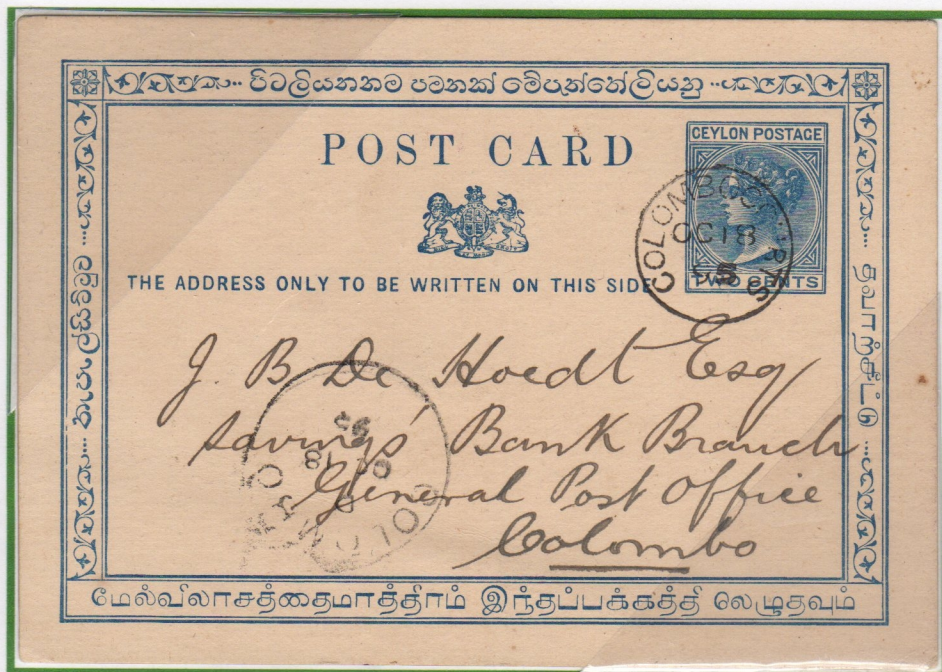 පිටලියනනම පමනක් මේපැත්තේලියනු
POST CARD
CEYLON POSTAGE
TWO CENTS
COLOMBO
OC 18
95
THE ADDRESS ONLY TO BE WRITTEN ON THIS SIDE
තැපැල්සිම්මුව
தவாற்சீட்டு
J. B De Hoedt Esq
Savings Bank Branch
General Post Office
Colombo
COLOMBO
18
மேல்விலாசத்தைமாத்திரம் இந்தப்பக்கத்தி லெழுதவும்